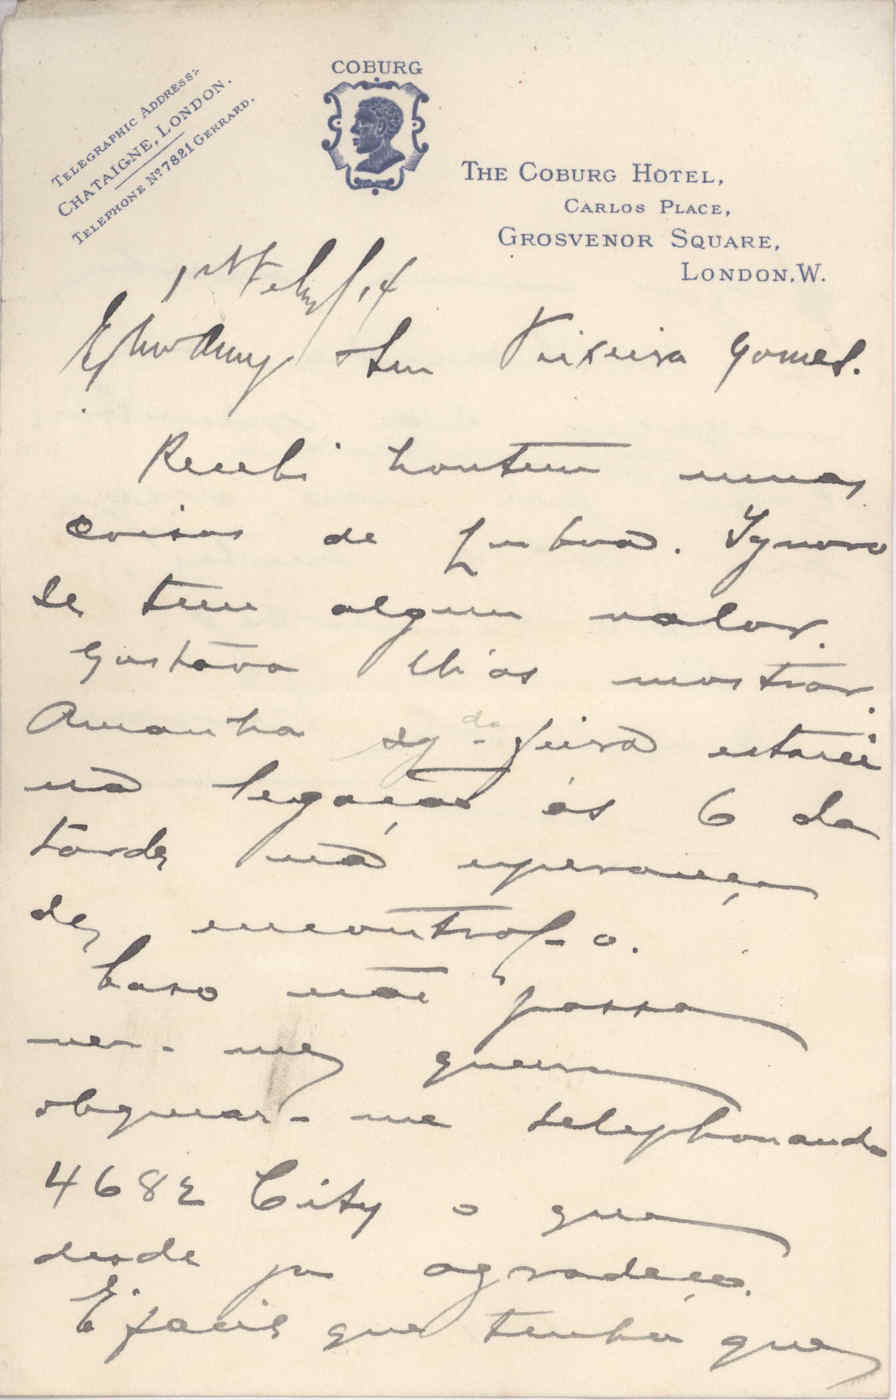 TELEGRAPHIC ADDRESS:-
CHATAIGNE, LONDON.
TELEPHONE No. 7821 GERRARD.
COBURG
THE COBURG HOTEL,
CARLOS PLACE,
GROSVENOR SQUARE,
LONDON. W.
1st Feby 14
Snr Teixeira Gomes.
Recebi hontem umas
coisas de Lisboa. Ignoro
se tem algum valor.
Gostava lh'as mostrar.
Amanha sgda-feira estarei
na legação ás 6 da
tarde na esperança
de encontral-o.
Caso não possa
ver-me queira
obsequiar-me telephonando
4682 City o que
desde ja agradeço.
E' facil que tenha que